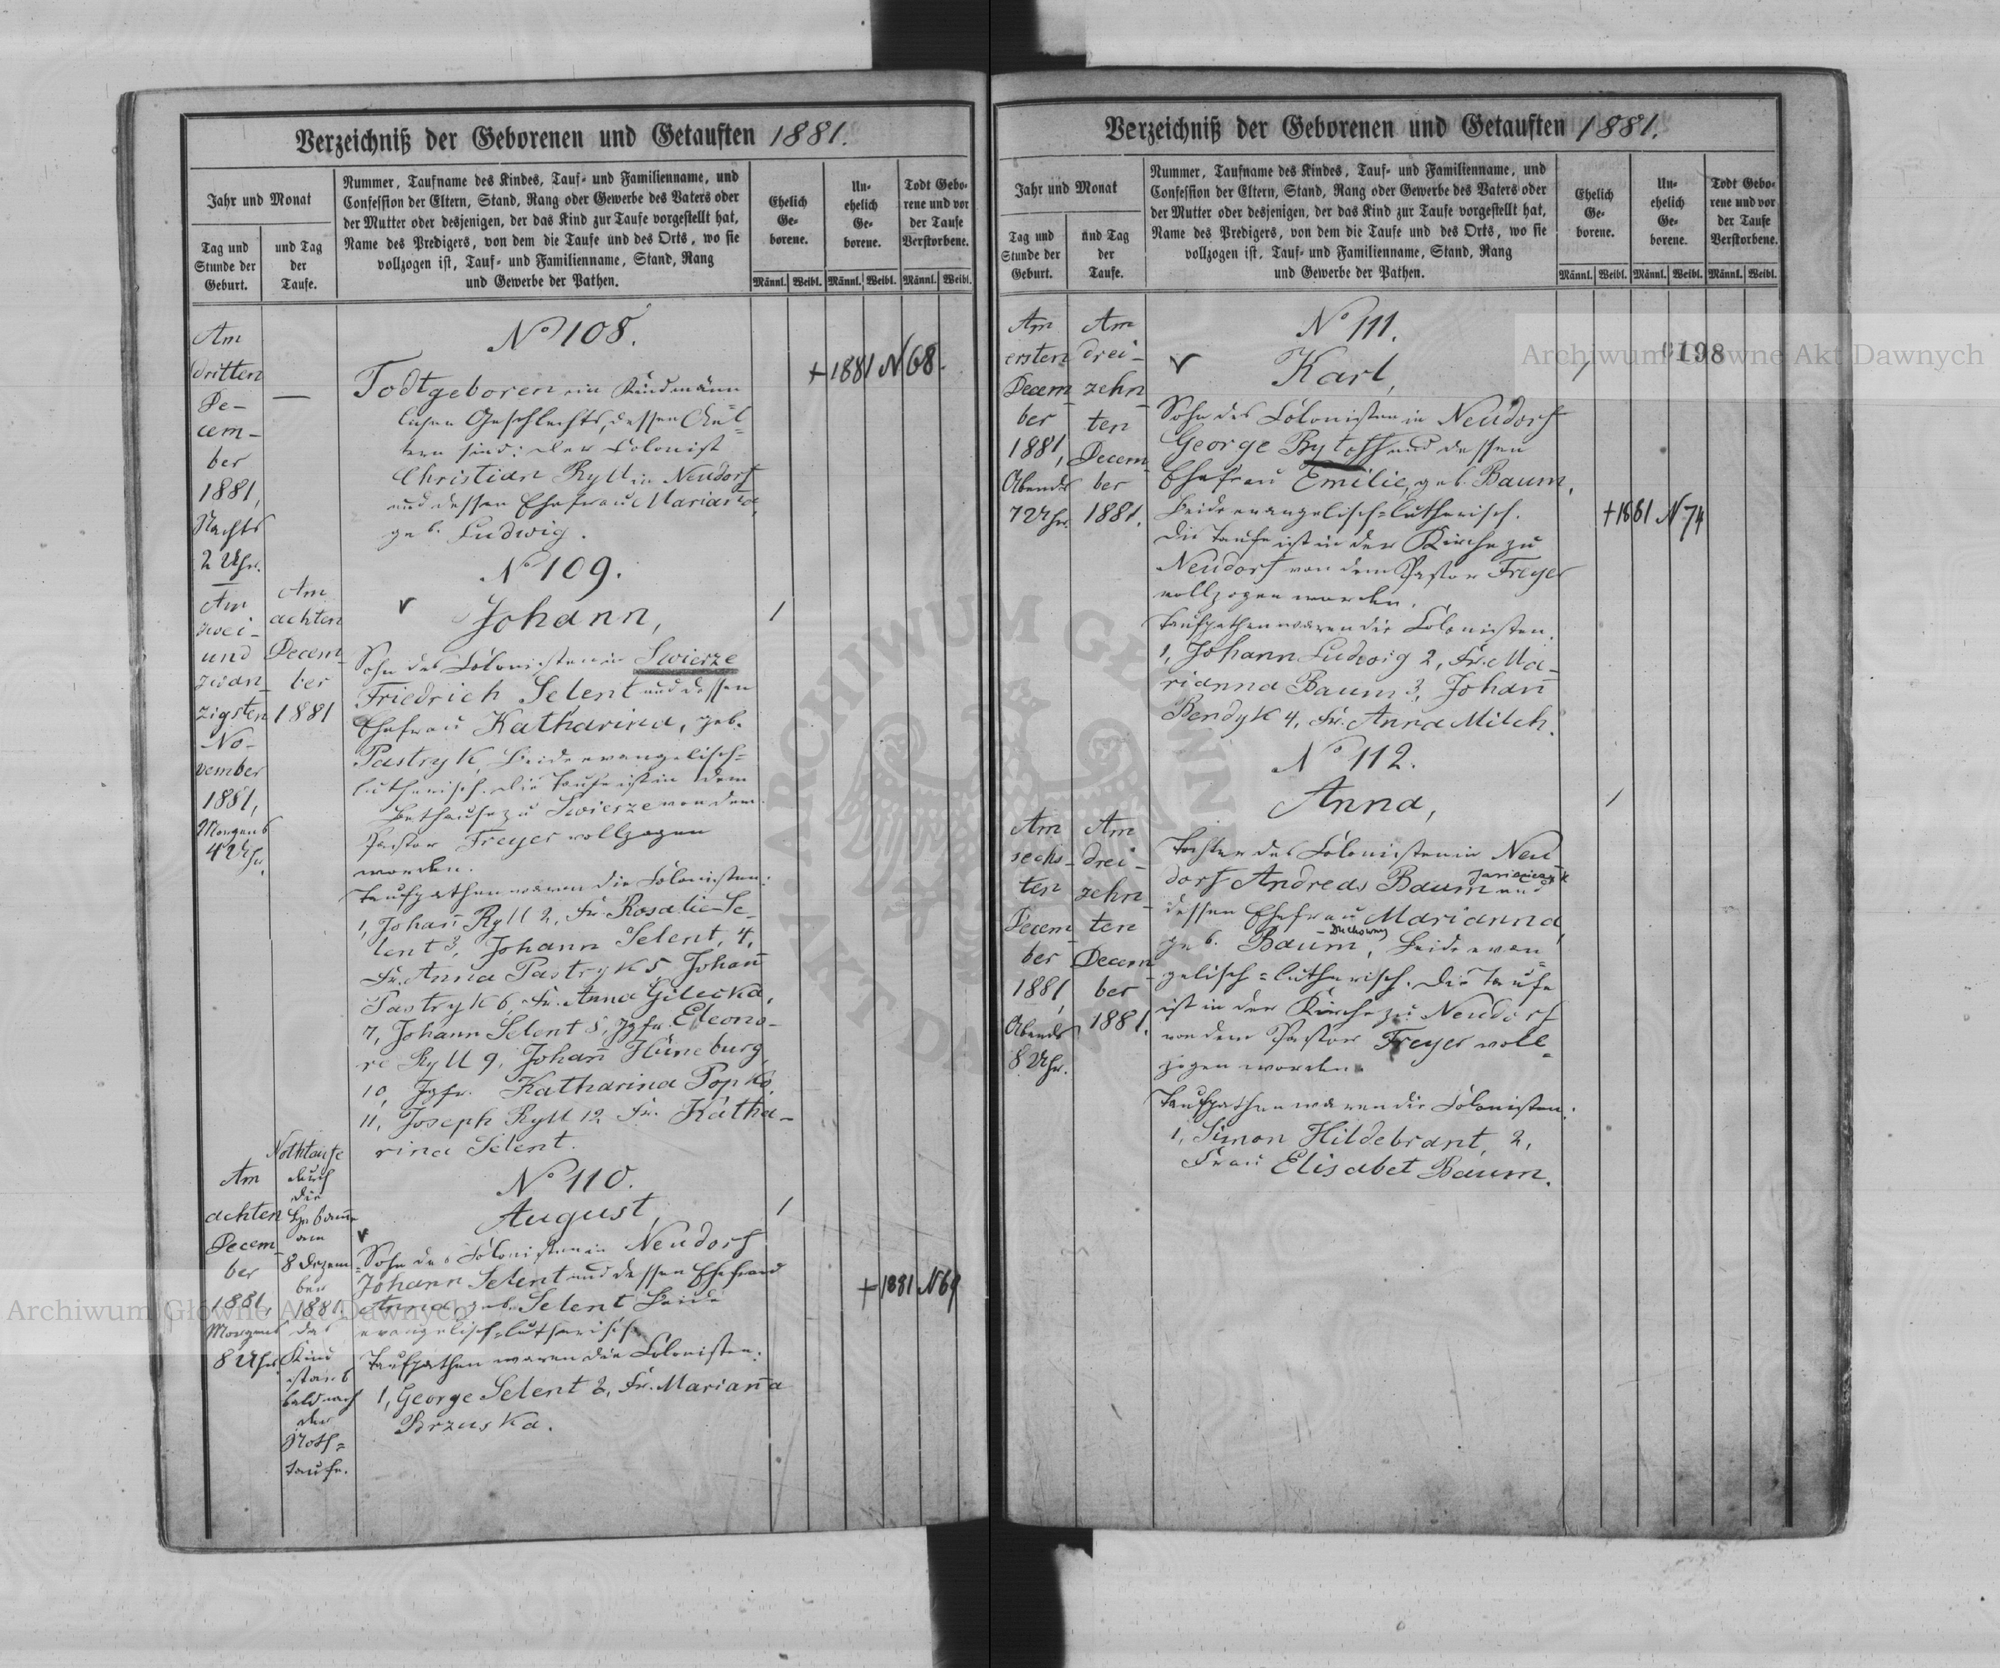 Verzeichniß der Geborenen und Getauften 1881.
Jahr und Monat
Tag und
Stunde der
Geburt.
und Tag
der
Taufe.
Nummer, Taufname des Kindes, Tauf- und Familienname, und
Confession der Eltern, Stand, Rang oder Gewerbe des Vaters oder
der Mutter oder desjenigen, der das Kind zur Taufe vorgestellt hat,
Name des Predigers, von dem die Taufe und des Orts, wo sie
vollzogen ist, Tauf- und Familienname, Stand, Rang
und Gewerbe der Pathen.
Ehelich
Ge-
borene.
Un-
ehelich
Ge-
borene.
Todt Gebo-
rene und vor
der Taufe
Verstorbene.
Männl. Weibl. Männl. Weibl. Männl. Weibl.
Am
dritten
De-
cem-
ber
1881,
Nachts
2 Uhr.
—
No 108.
Todtgeboren ein Kind männ-
lichen Geschlechts, dessen Ael-
tern sind: der Colonist
Christian Ryll in Neudorf
und dessen Ehefrau Marianna,
geb. Ludwig.
+ 1881 N 68.
Am
zwei-
und
zwan-
zigsten
No-
vember
1881,
Morgens
4 Uhr.
Am
achten
Decem-
ber
1881
No 109.
Johann,
Sohn des Colonisten in Swierze
Friedrich Selent und dessen
Ehefrau Katharina, geb.
Pastryk, Beide evangelisch-
lutherisch. Die Taufe ist in dem
Bethause zu Swierze von dem
Pastor Freyer vollzogen
worden.
Taufpathen waren die Colonisten:
1, Johann Ryll 2, Fr. Rosalie Se-
lent 3, Johann Selent, 4,
Fr. Anna Pastryk 5, Johann
Pastryk 6, Fr. Anna Gilecka,
7, Johann Selent 8, Jgfr. Eleono-
re Ryll 9, Johann Hüneburg,
10, Jgfr. Katharina Popko,
11, Joseph Ryll 12, Fr. Katha-
rina Selent.
Am
achten
Decem-
ber
1881,
Morgens
8 Uhr.
Nothtaufe
durch
die
am
8 Dezem-
ber
1881.
das
Kind
starb
bald nach
der
Noth-
taufe.
No 110.
August
Sohn des Colonisten in Neudorf
Johann Selent und dessen Ehefrau
Anna geb. Selent Beide
evangelisch-lutherisch
Taufpathen waren die Colonisten:
1, George Selent 2, Fr. Marianna
Brzuska.
+ 1881 N 69
Verzeichniß der Geborenen und Getauften 1881.
Jahr und Monat
Tag und
Stunde der
Geburt.
und Tag
der
Taufe.
Nummer, Taufname des Kindes, Tauf- und Familienname, und
Confession der Eltern, Stand, Rang oder Gewerbe des Vaters oder
der Mutter oder desjenigen, der das Kind zur Taufe vorgestellt hat,
Name des Predigers, von dem die Taufe und des Orts, wo sie
vollzogen ist, Tauf- und Familienname, Stand, Rang
und Gewerbe der Pathen.
Ehelich
Ge-
borene.
Un-
ehelich
Ge-
borene.
Todt Gebo-
rene und vor
der Taufe
Verstorbene.
Männl. Weibl. Männl. Weibl. Männl. Weibl.
198
Am
ersten
Decem-
ber
1881,
Abends
7 Uhr.
Am
drei-
zehn-
ten
Decem-
ber
1881.
No 111.
Karl,
Sohn des Colonisten in Neudorf
George Bytoff und dessen
Ehefrau Emilie, geb. Baum,
Beide evangelisch-lutherisch.
Die Taufe ist in der Kirche zu
Neudorf von dem Pastor Freyer
vollzogen worden.
Taufpathen waren die Colonisten:
1, Johann Ludwig 2, Fr. Ma-
rianna Baum 3, Johann
Bendyk 4, Fr. Anna Milch.
+ 1881 N 74
Am
sechs-
ten
Decem-
ber
1881,
Abends
8 Uhr.
Am
drei-
zehn-
ten
Decem-
ber
1881.
No 112.
Anna,
Tochter des Colonisten in Neu
dorf Andreas Baum und
dessen Ehefrau Marianna,
geb. Baum, Beide evan-
gelisch-lutherisch. Die Taufe
ist in der Kirche zu Neudorf
von dem Pastor Freyer voll-
zogen worden.
Taufpathen waren die Colonisten:
1, Simon Hildebrant, 2,
Frau Elisabet Baum.
Archiwum Główne Akt Dawnych
Archiwum Główne Akt Dawnych
ARCHIWUM GŁÓWNE AKT DAWNYCH